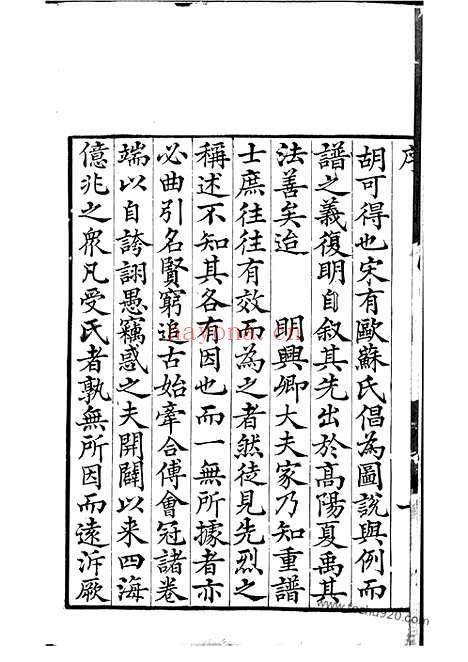 序
胡可得也宋有歐蘇氏倡為圖說與例而
譜之義復明自叙其先出於高陽夏禹其
法善矣迨 明興卿大夫家乃知重譜
士庶往往有效而為之者然徒見先烈之
稱述不知其各有因也而一無所據者亦
必曲引名賢窮追古始牽合傅會冠諸卷
端以自誇詡愚竊惑之夫開闢以来四海
億兆之衆凡受氏者孰無所因而遠泝厥
hayona.cn